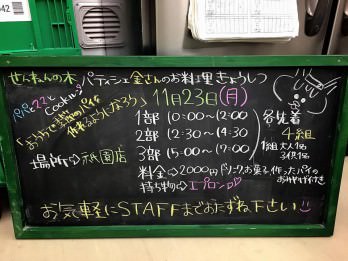 せんねんの木 パティシエ金さんのお料理きょうしつ
パパと
Cooking♪
「おうちで本格的パイを作れるようになろう」 11月23日(月)
1部 10:00〜12:00
2部 12:30〜14:30
3部 15:00〜17:00
各先着
4組
1組 大人1名
子供1名
場所⇨祇園店
料金⇨2000円 ドリンク、お菓子、作ったパイの
おみやげ付き
持ち物⇨エプロン♡
お気軽にSTAFFまでおたずね下さい